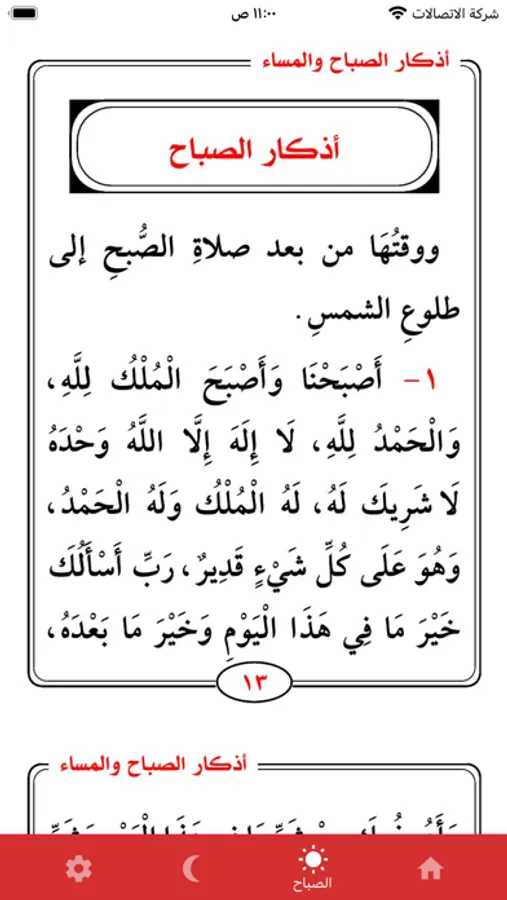 شركة الاتصالات ١١:٠٠ ص
أذكار الصباح والمساء
أذكار الصباح
ووقتُهَا من بعد صلاةِ الصُّبحِ إلى
طلوعِ الشمسِ.
١- أَصْبَحْنَا وَأَصْبَحَ الْمُلْكُ لِلَّهِ،
وَالْحَمْدُ لِلَّهِ، لَا إِلَهَ إِلَّا اللَّهُ وَحْدَهُ
لَا شَرِيكَ لَهُ، لَهُ الْمُلْكُ وَلَهُ الْحَمْدُ،
وَهُوَ عَلَى كُلِّ شَيْءٍ قَدِيرٌ، رَبِّ أَسْأَلُكَ
خَيْرَ مَا فِي هَذَا الْيَوْمِ وَخَيْرَ مَا بَعْدَهُ،
١٣
أذكار الصباح والمساء
الصباح